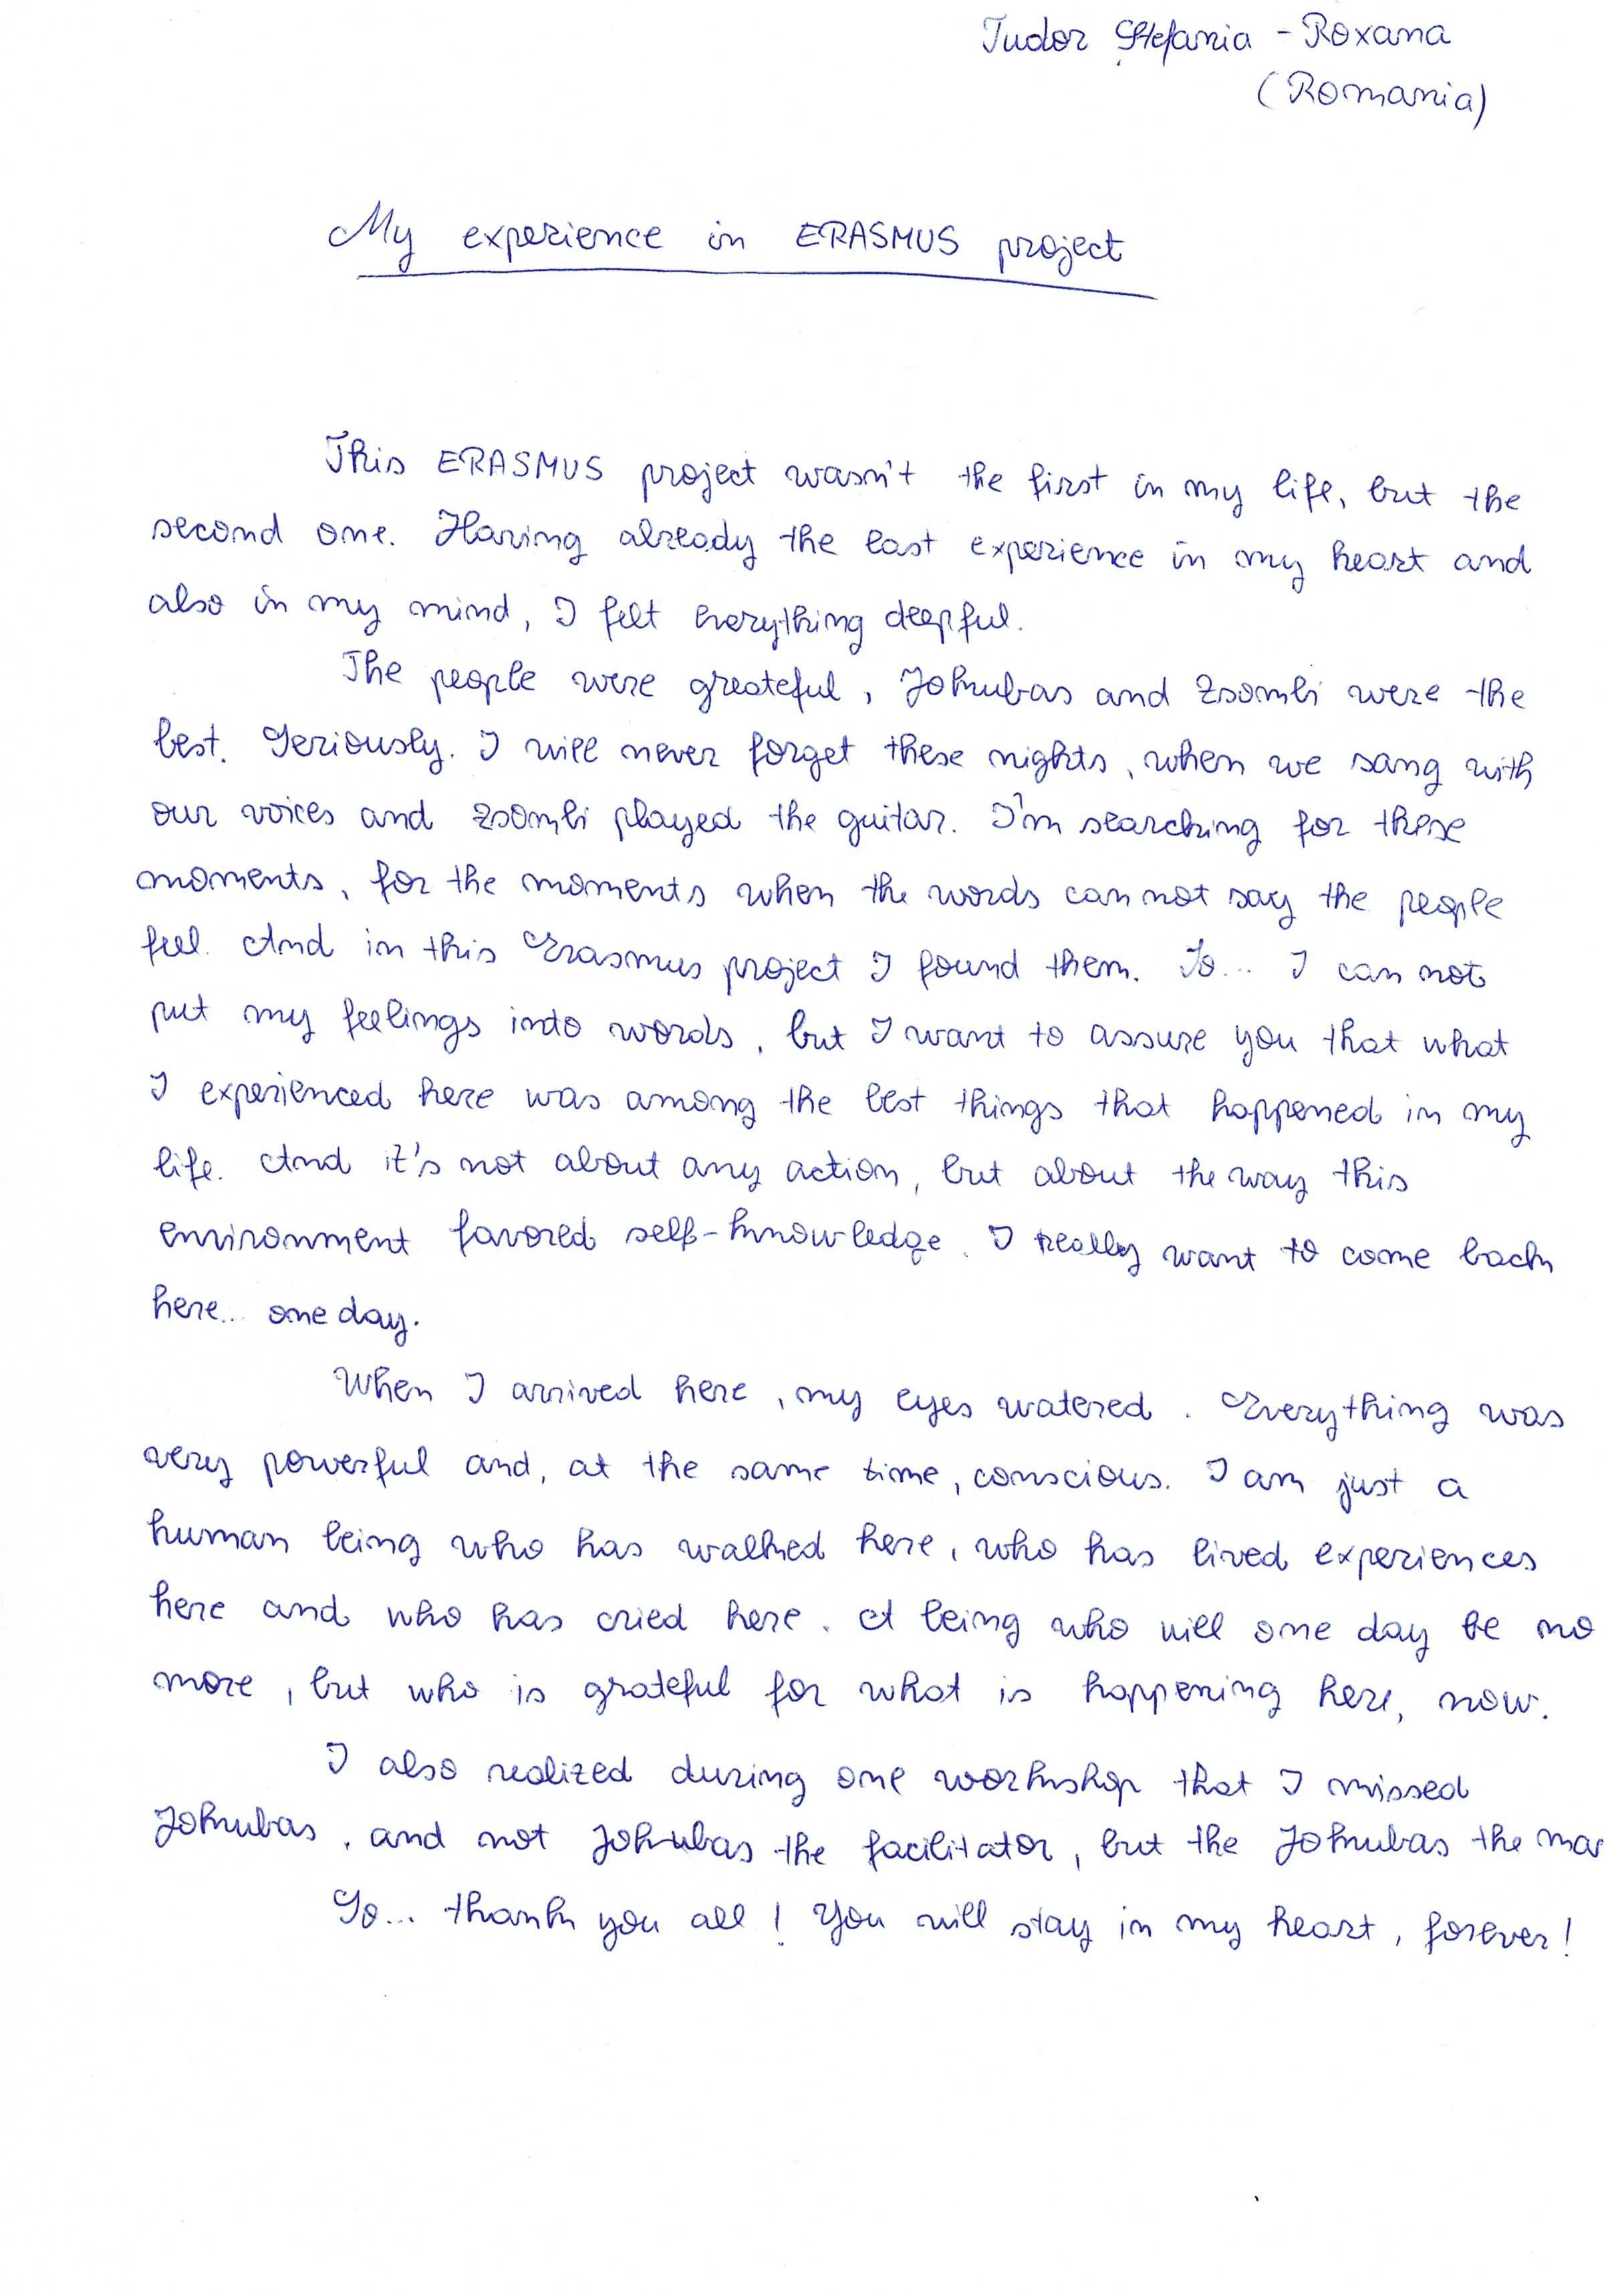 Tudor Ștefania - Roxana
(Romania)
My experience in ERASMUS project
This ERASMUS project wasn't the first in my life, but the
second one. Having already the last experience in my heart and
also in my mind, I felt everything deepful.
The people were greateful, Johubas and Zsombi were the
best. Seriously. I will never forget these nights, when we sang with
our voices and Zsombi played the guitar. I'm searching for these
moments, for the moments when the words can not say the people
feel. And in this Erasmus project I found them. So... I can not
put my feelings into words, but I want to assure you that what
I experienced here was among the best things that happened in my
life. And it's not about any action, but about the way this
environment favored self-knowledge. I really want to come back
here... one day.
When I arrived here, my eyes watered. Everything was
very powerful and, at the same time, conscious. I am just a
human being who has walked here, who has lived experiences
here and who has cried here. A being who will one day be no
more, but who is grateful for what is happening here, now.
I also realized during one workshop that I missed
Johubas, and not Johubas the facilitator, but the Johubas the man
So... thank you all! You will stay in my heart, forever!